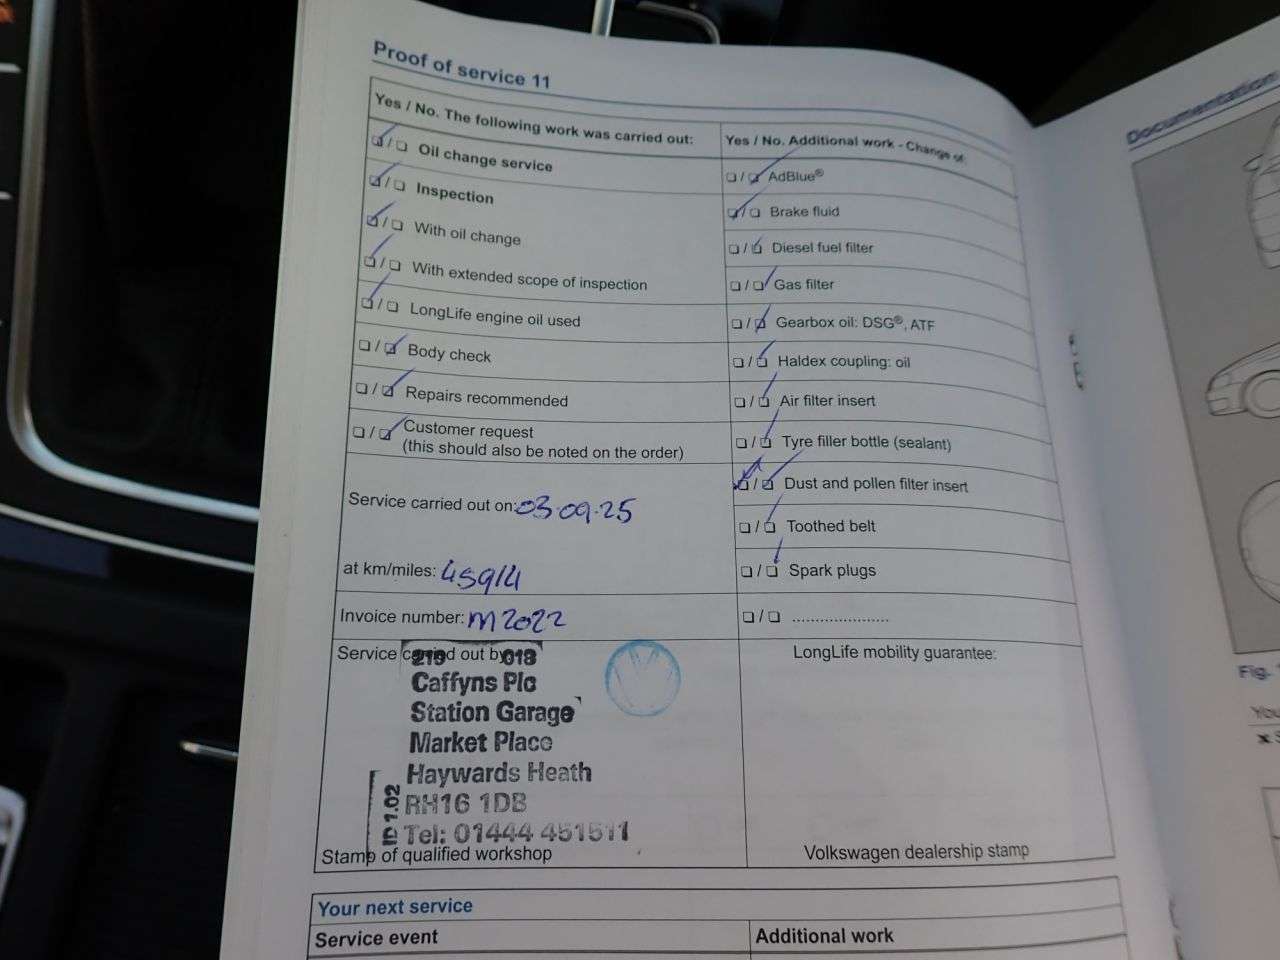 Proof of service 11
Yes / No. The following work was carried out:
☑ / ☐ Oil change service
☑ / ☐ Inspection
☑ / ☐ With oil change
☑ / ☐ With extended scope of inspection
☑ / ☐ LongLife engine oil used
☐ / ☑ Body check
☐ / ☑ Repairs recommended
☐ / ☑ Customer request
(this should also be noted on the order)
Service carried out on: 03.09.25
at km/miles: 45914
Invoice number: M2022
Service carried out by:
219 018
Caffyns Plc
Station Garage
Market Place
Haywards Heath
RH16 1DB
Tel: 01444 451511
1.02
Stamp of qualified workshop
Yes / No. Additional work - Change of:
☐ / ☑ AdBlue®
☑ / ☐ Brake fluid
☐ / ☑ Diesel fuel filter
☐ / ☑ Gas filter
☐ / ☑ Gearbox oil: DSG®, ATF
☐ / ☑ Haldex coupling: oil
☐ / ☑ Air filter insert
☐ / ☑ Tyre filler bottle (sealant)
☑ / ☑ Dust and pollen filter insert
☐ / ☑ Toothed belt
☐ / ☑ Spark plugs
☐ / ☐ ......................
LongLife mobility guarantee:
Volkswagen dealership stamp
Your next service
Service event
Additional work
Documentation
Fig.